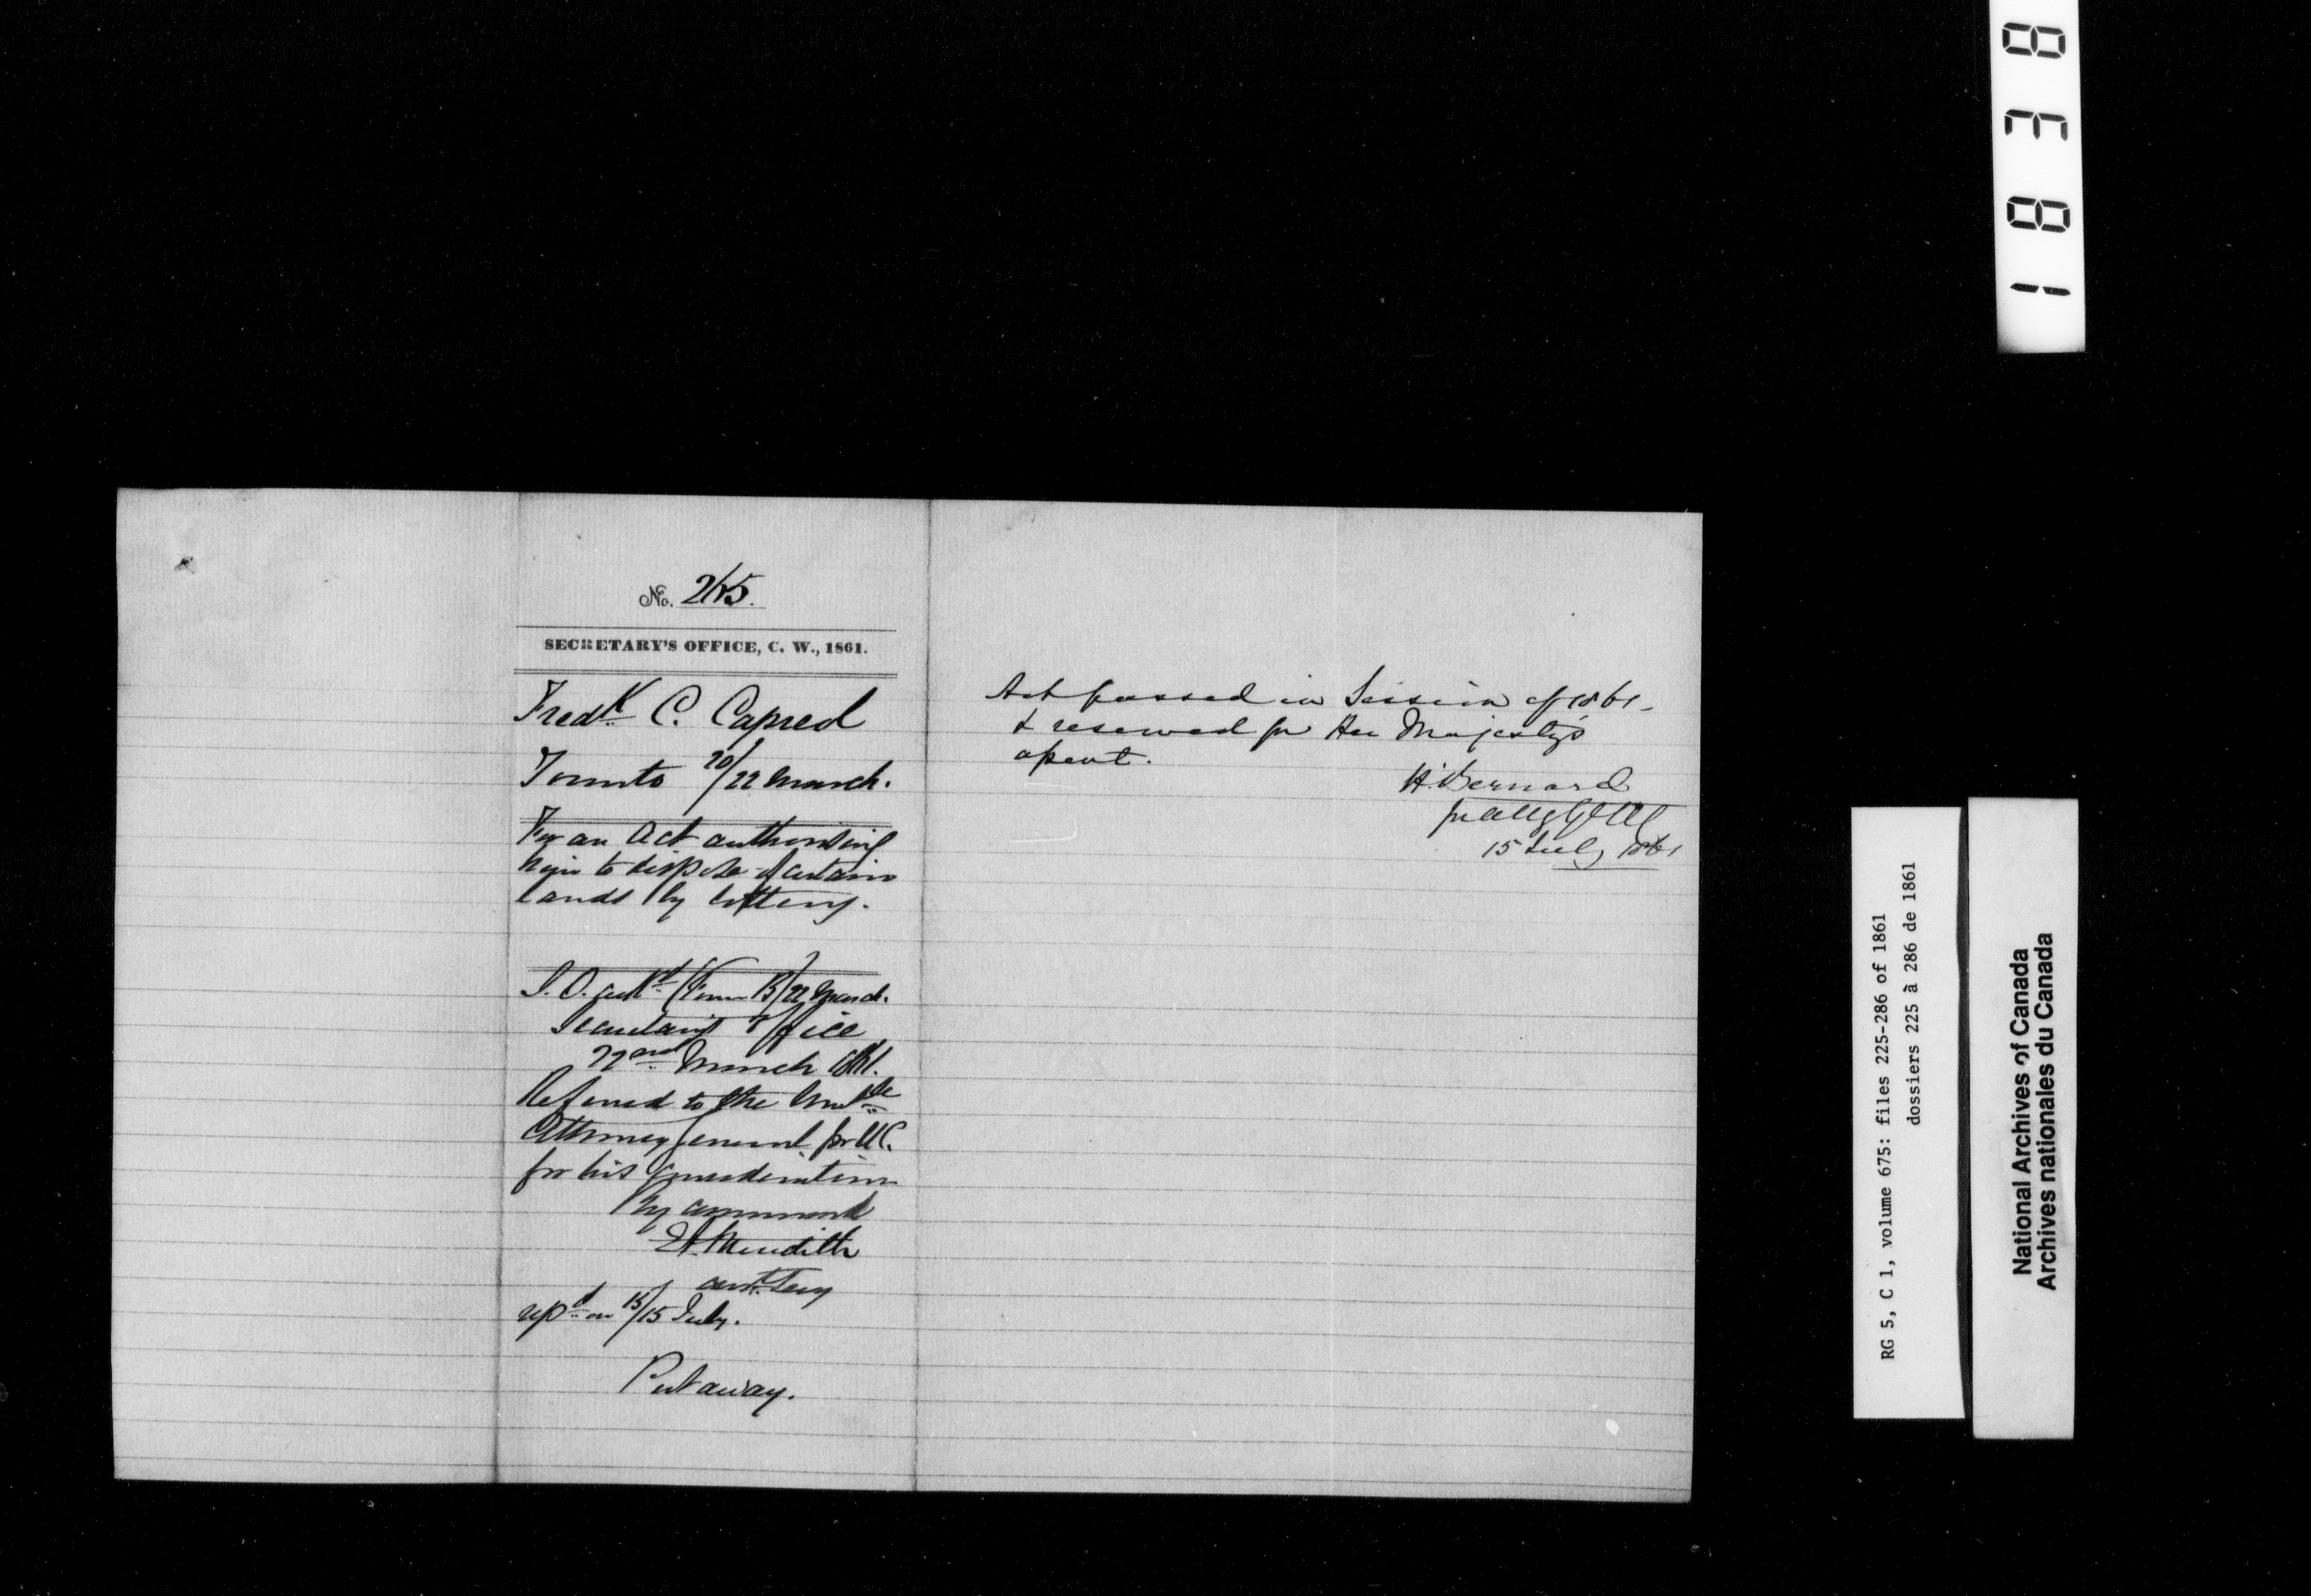 No. 265.
SECRETARY'S OFFICE, C. W., 1861.
Fredk C. Capreol
Toronto 20/22 March.
For an Act authorising
him to dispose of certain
lands by lottery.
S. O. ackd (Form B) 22 March.
Secretary's Office
22nd March 1861.
Referred to the Honble
Attorney General for U.C.
for his consideration
By command
E A Meredith
asst. Secy
repd on 15/15 July.
Put away.
Act passed in Session of 1861 -
& reserved for Her Majesty's
assent.
H. Bernard
for Atty Genl
15 July 1861
1838
RG 5, C 1, volume 675: files 225-286 of 1861
dossiers 225 à 286 de 1861
National Archives of Canada
Archives nationales du Canada